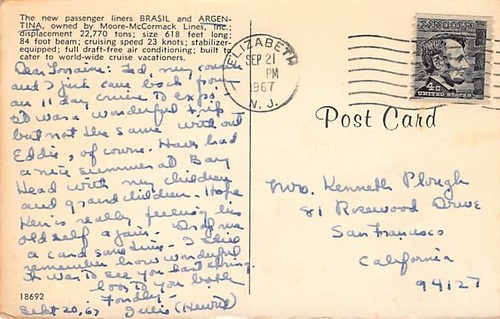 The new passenger liners BRASIL and ARGEN-
TINA, owned by Moore-McCormack Lines, Inc.;
displacement 22,770 tons; size 618 feet long;
84 foot beam; cruising speed 23 knots; stabilizer-
equipped; full draft-free air conditioning; built to
cater to world-wide cruise vacationers.
Dear Lorraine: Ted, my cousin
and I just came back from
an 11 day cruise to Expo.
It was a wonderful trip
but not the same without
Eddie, of course. Have had
a nice summer at Bay
Head with my children
and grandchildren. Hope
Ken is really feeling his
old self again. Drop me
a card some time. I still
remember how wonderful
it was to see you last spring.
love to you both
Fondly -
Sept 20, 67
18692
ELIZABETH
SEP 21
PM
1967
N. J.
4c
UNITED STATES
Post Card
Mrs. Kenneth Plough
81 Rosewood Drive
San Francisco
California
94127